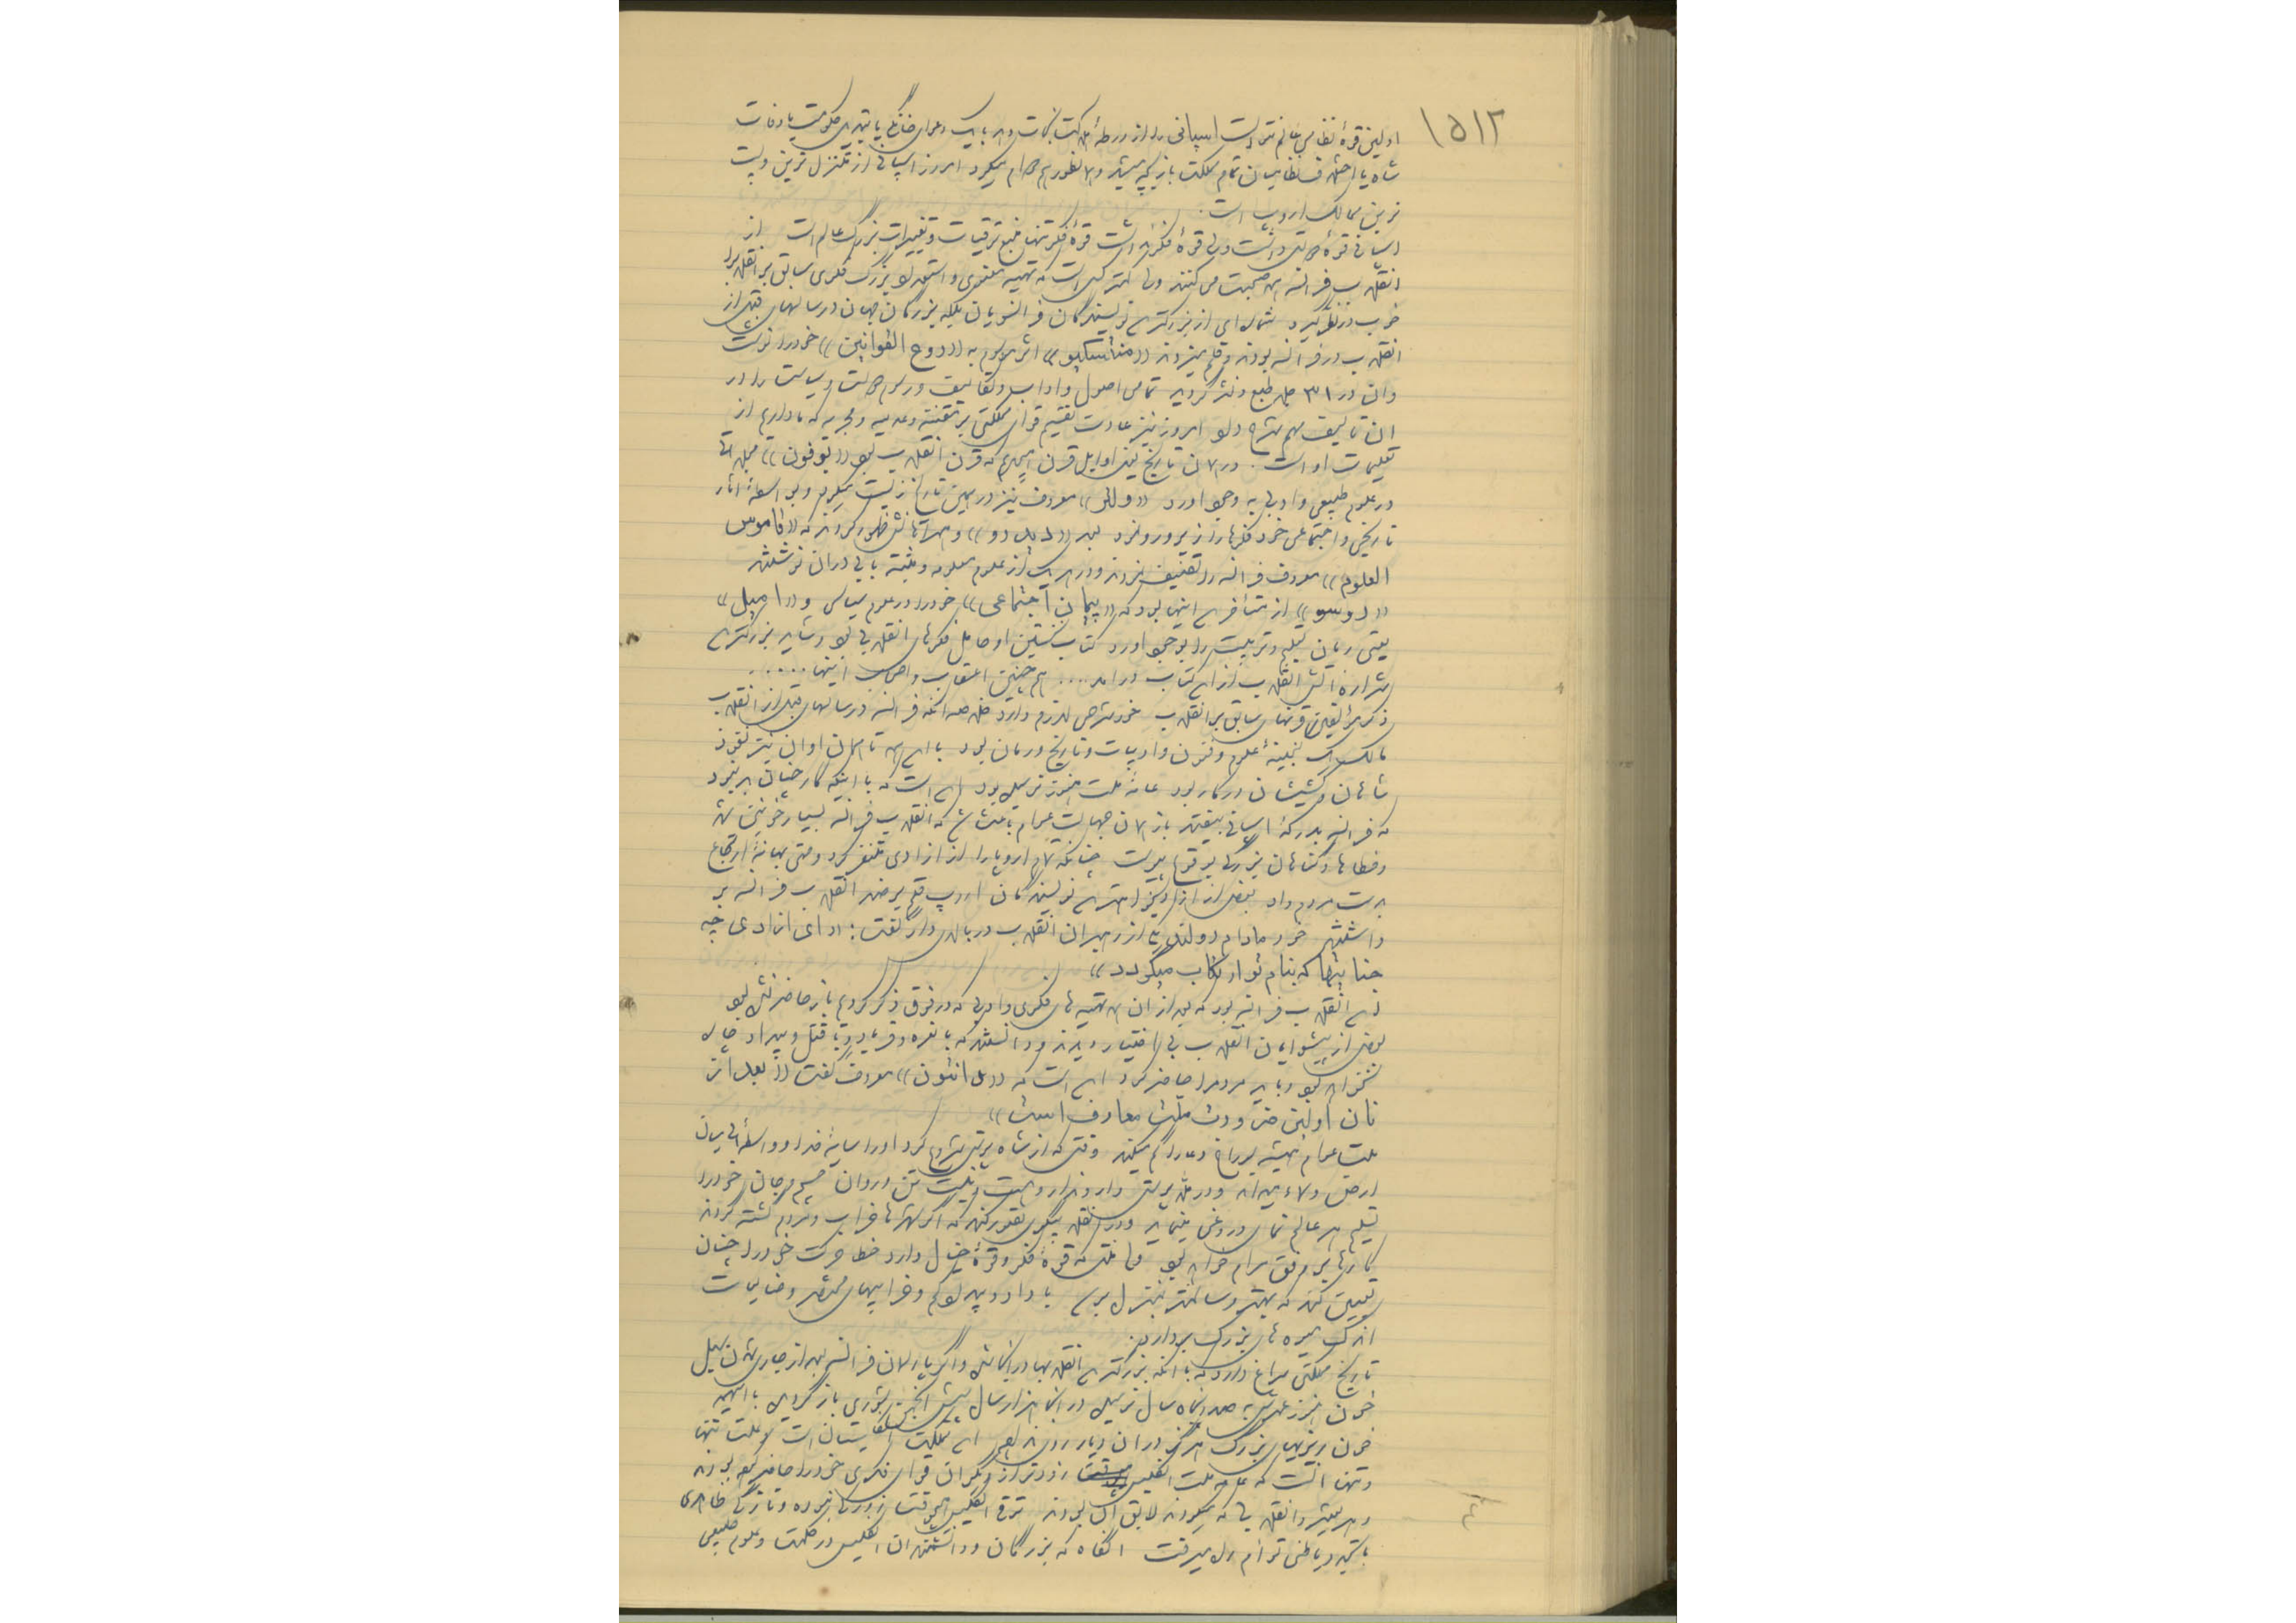 ١٥١٢
اولین قوهٔ نظامی عالم نتوانست اسپانی را از ورطهٔ هلاکت نجات دهد با یک دعوای خانگی یا تبدیل حکومت یا وفات
شاه یا جنبش نظامیان تمام مملکت بازیچه میشد و همانطور هم دوام میکرد امروز اسپانی از متنزل ترین و پست
ترین ممالک اروپا است.
اسپانی قوهٔ دولتی داشت ولی قوهٔ فکری نداشت قوهٔ فکر تنها منبع ترقیات و تغییرات بزرگ عالم است از
انقلاب فرانسه همه صحبت می کنند ولی کمتر کسی است که تهیه معنوی و استعداد بزرگ فکری سابق بر انقلاب را
خوب در نظر گیرد شماره ای از بزرگترین نویسندگان فرانسویان بلکه بزرگان جهان در سالهای قبل از
انقلاب در فرانسه بودند و قلم میزدند «منتسکیو» اثر موسوم به «روح القوانین» خود را نوشت
و آن در ٣١ جلد طبع و نشر گردید تمامی اصول و آداب و تکالیف و رسوم دولت و سیاست را در
آن تألیف مهم شرح داد امروز نیز عادت تقسیم قوای مملکتی بر مقننه و عدلیه و مجریه که ما داریم از
تعلیمات او است. در همان تاریخ یعنی اوایل قرن هیجدهم که قرن انقلاب بود «بوفون» مجله های
در علوم طبیعی و ادبی به وجود آورد «ولتر» معروف نیز در همین تاریخ زیست میکرد و بواسطهٔ آثار
تاریخی و اجتماعی خود فکرها را زیر و رو نمود بعد «دیدرو» و همراهانش ظهور کردند که «قاموس
العلوم» معروف فرانسه را تصنیف نمودند و در هر یک از علوم معلومه و مثبته بابی در آن نوشتند
«روسو» از متأخرین اینها بود که «پیمان اجتماعی» خود را در علوم سیاسی و «امیل»
یعنی رمان تعلیم و تربیت را بوجود آورد کتاب نخستین او حامل فکرهای انقلابی بود و شاید بزرگترین
شراره آتش انقلاب از این کتاب در آمد .... هم چنین اعقاب و اصحاب اینها .....
ذکر مؤلفین قرنهای سابق بر انقلاب خود شرحی لازم دارد خلاصه آنکه فرانسه در سالهای قبل از انقلاب
مالک یک گنجینهٔ علوم و فنون و ادبیات و تاریخ و رمان بود با این همه تا همان اوان نیز نفوذ
شاهان و کشیشان در کار بود عامهٔ ملت هنوز نرسیده بود این است که با اینکه کار چنان بر نبود
که فرانسه بدرکهٔ اسپانی بیفتد باز همان جهالت عوام باعث شد که انقلاب فرانسه بسیار خونین شد
و خطاها و گناهان بزرگی بوقوع پیوست چنانکه تمام اروپا را از آزادی متنفر کرد و حتی بهانهٔ ارتجاع
بدست مردم داد بعضی از آزادیخواه ترین نویسندگان اروپ قلم بر ضد انقلاب فرانسه بر
داشتند خود مادام رولند یکی از رهبران انقلاب در بالای دار گفت: «ای آزادی چه
جنایتها که بنام تو ارتکاب میگردد»
این انقلاب فرانسه بود که بعد از آن همه تهیه های فکری و ادبی که در فوق ذکر کردم باز حاضر نشده بود
بعضی از پیشوایان انقلاب بی اختیار دیدند و دانستند که با نعره و فریاد و یا قتل و بیداد چاره
نخواهد بود باید مردم را حاضر کرد این است که «دانتون» معروف گفت «بعد از
نان اولین ضرورت ملت معارف است»
ملت عوام همیشه براغ و راه گم میکند وقتی که از شاه پرستی شروع کرد او را سایهٔ خدا و واسطهٔ میان
ارض و سماء میداند و در ملا پرستی دار و ندار و هست و نیست تن و روان جسم و جان خود را
تسلیم هر عالم نمای دروغی مینماید و در انقلاب نیکوی تصور کند که اگر شهرها خراب و مردم کشته گردند
کارها بر وفق مرام خواهد بود اما ملتی که قوهٔ فکر و قوهٔ خیال دارد خط حرکت خود را چنان
تعیین کند که بهتر و سالمتر بمنزل برسد با داد و بیداد کم و خرابیهای مختصر و ضایعات
اندک میوه های بزرگ بردارد.
تاریخ مملکتی سراغ دارد که با آنکه بزرگترین انقلابها در آنجا شد و اگر پارلمان فرانسه بعد از جاری شدن سیل
خون هنوز عمرش به صد و پنجاه سال نرسیده در آنجا هزار سال پیش انجمن شوری باز گردیده با اینهمه
خون ریزیهای بزرگ هرگز در آن دیار روی نداده این مملکت انگلیستان است و علت تنها
و تنها آنست که عامهٔ ملت انگلیس زودتر از دیگران قوای فکری خود را حاضر کرده بودند
و هر تغییر و انقلابی که میکردند لایق آن بودند ترقی انگلیس هیچوقت زورکی نبوده و تازگی ظاهری
با تجدد باطنی توأم راه میرفت آنگاه که بزرگان و دانشمندان انگلیس در حکمت و علوم طبیعی